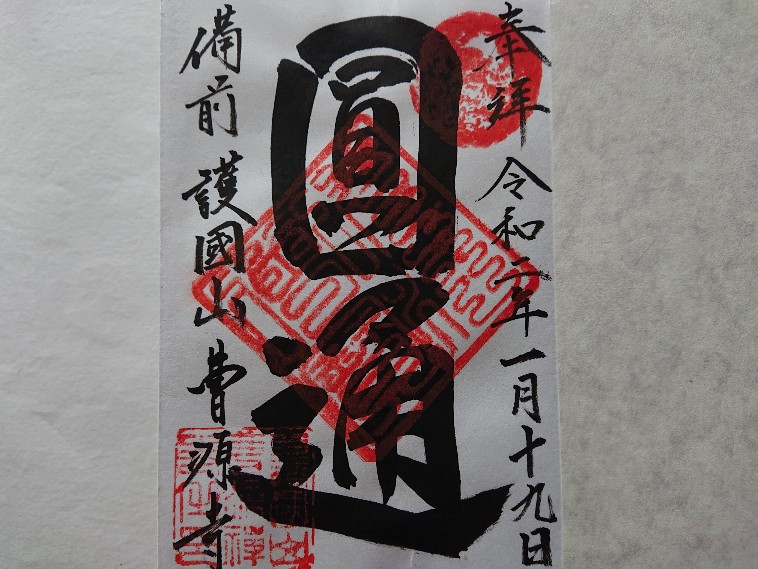 奉拝 令和二年一月十九日
圓通
備前 護國山 曹源寺